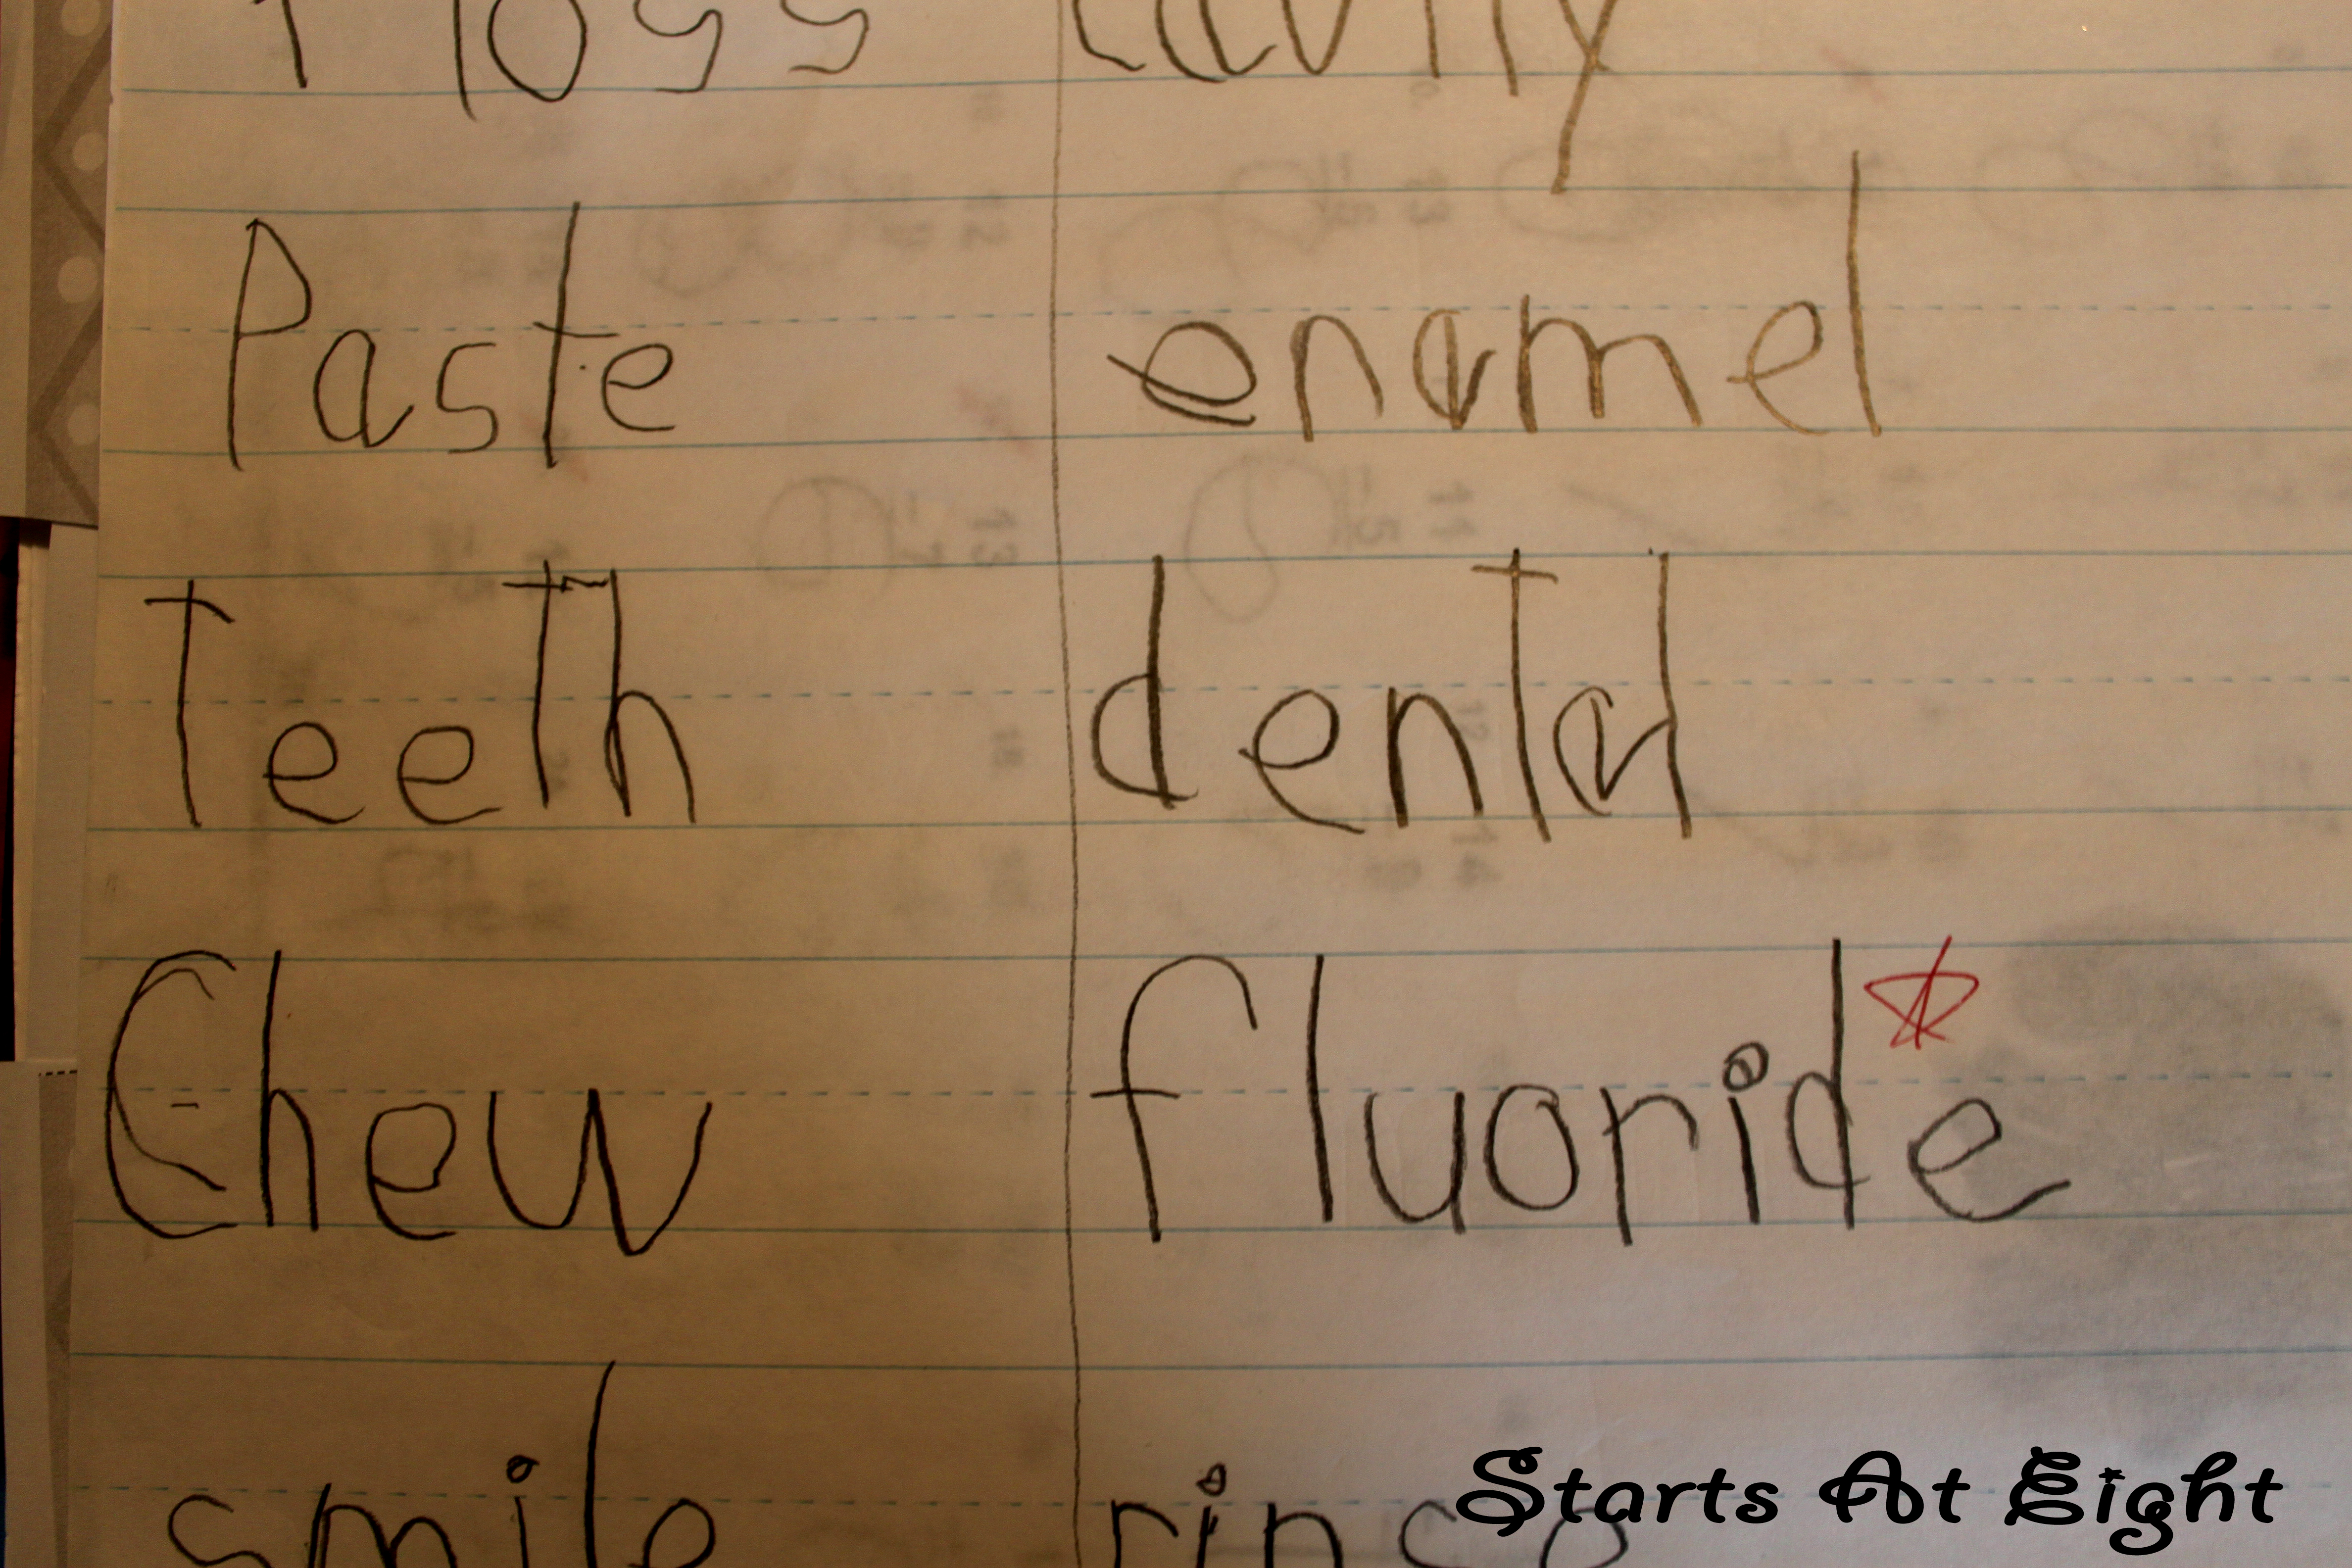 floss cavity
Paste enamel
Teeth dental
Chew fluoride
smile rinse
Starts At Eight